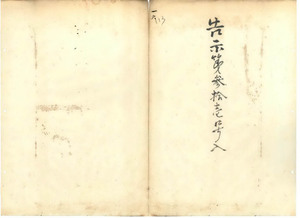 告示第参拾壱号入